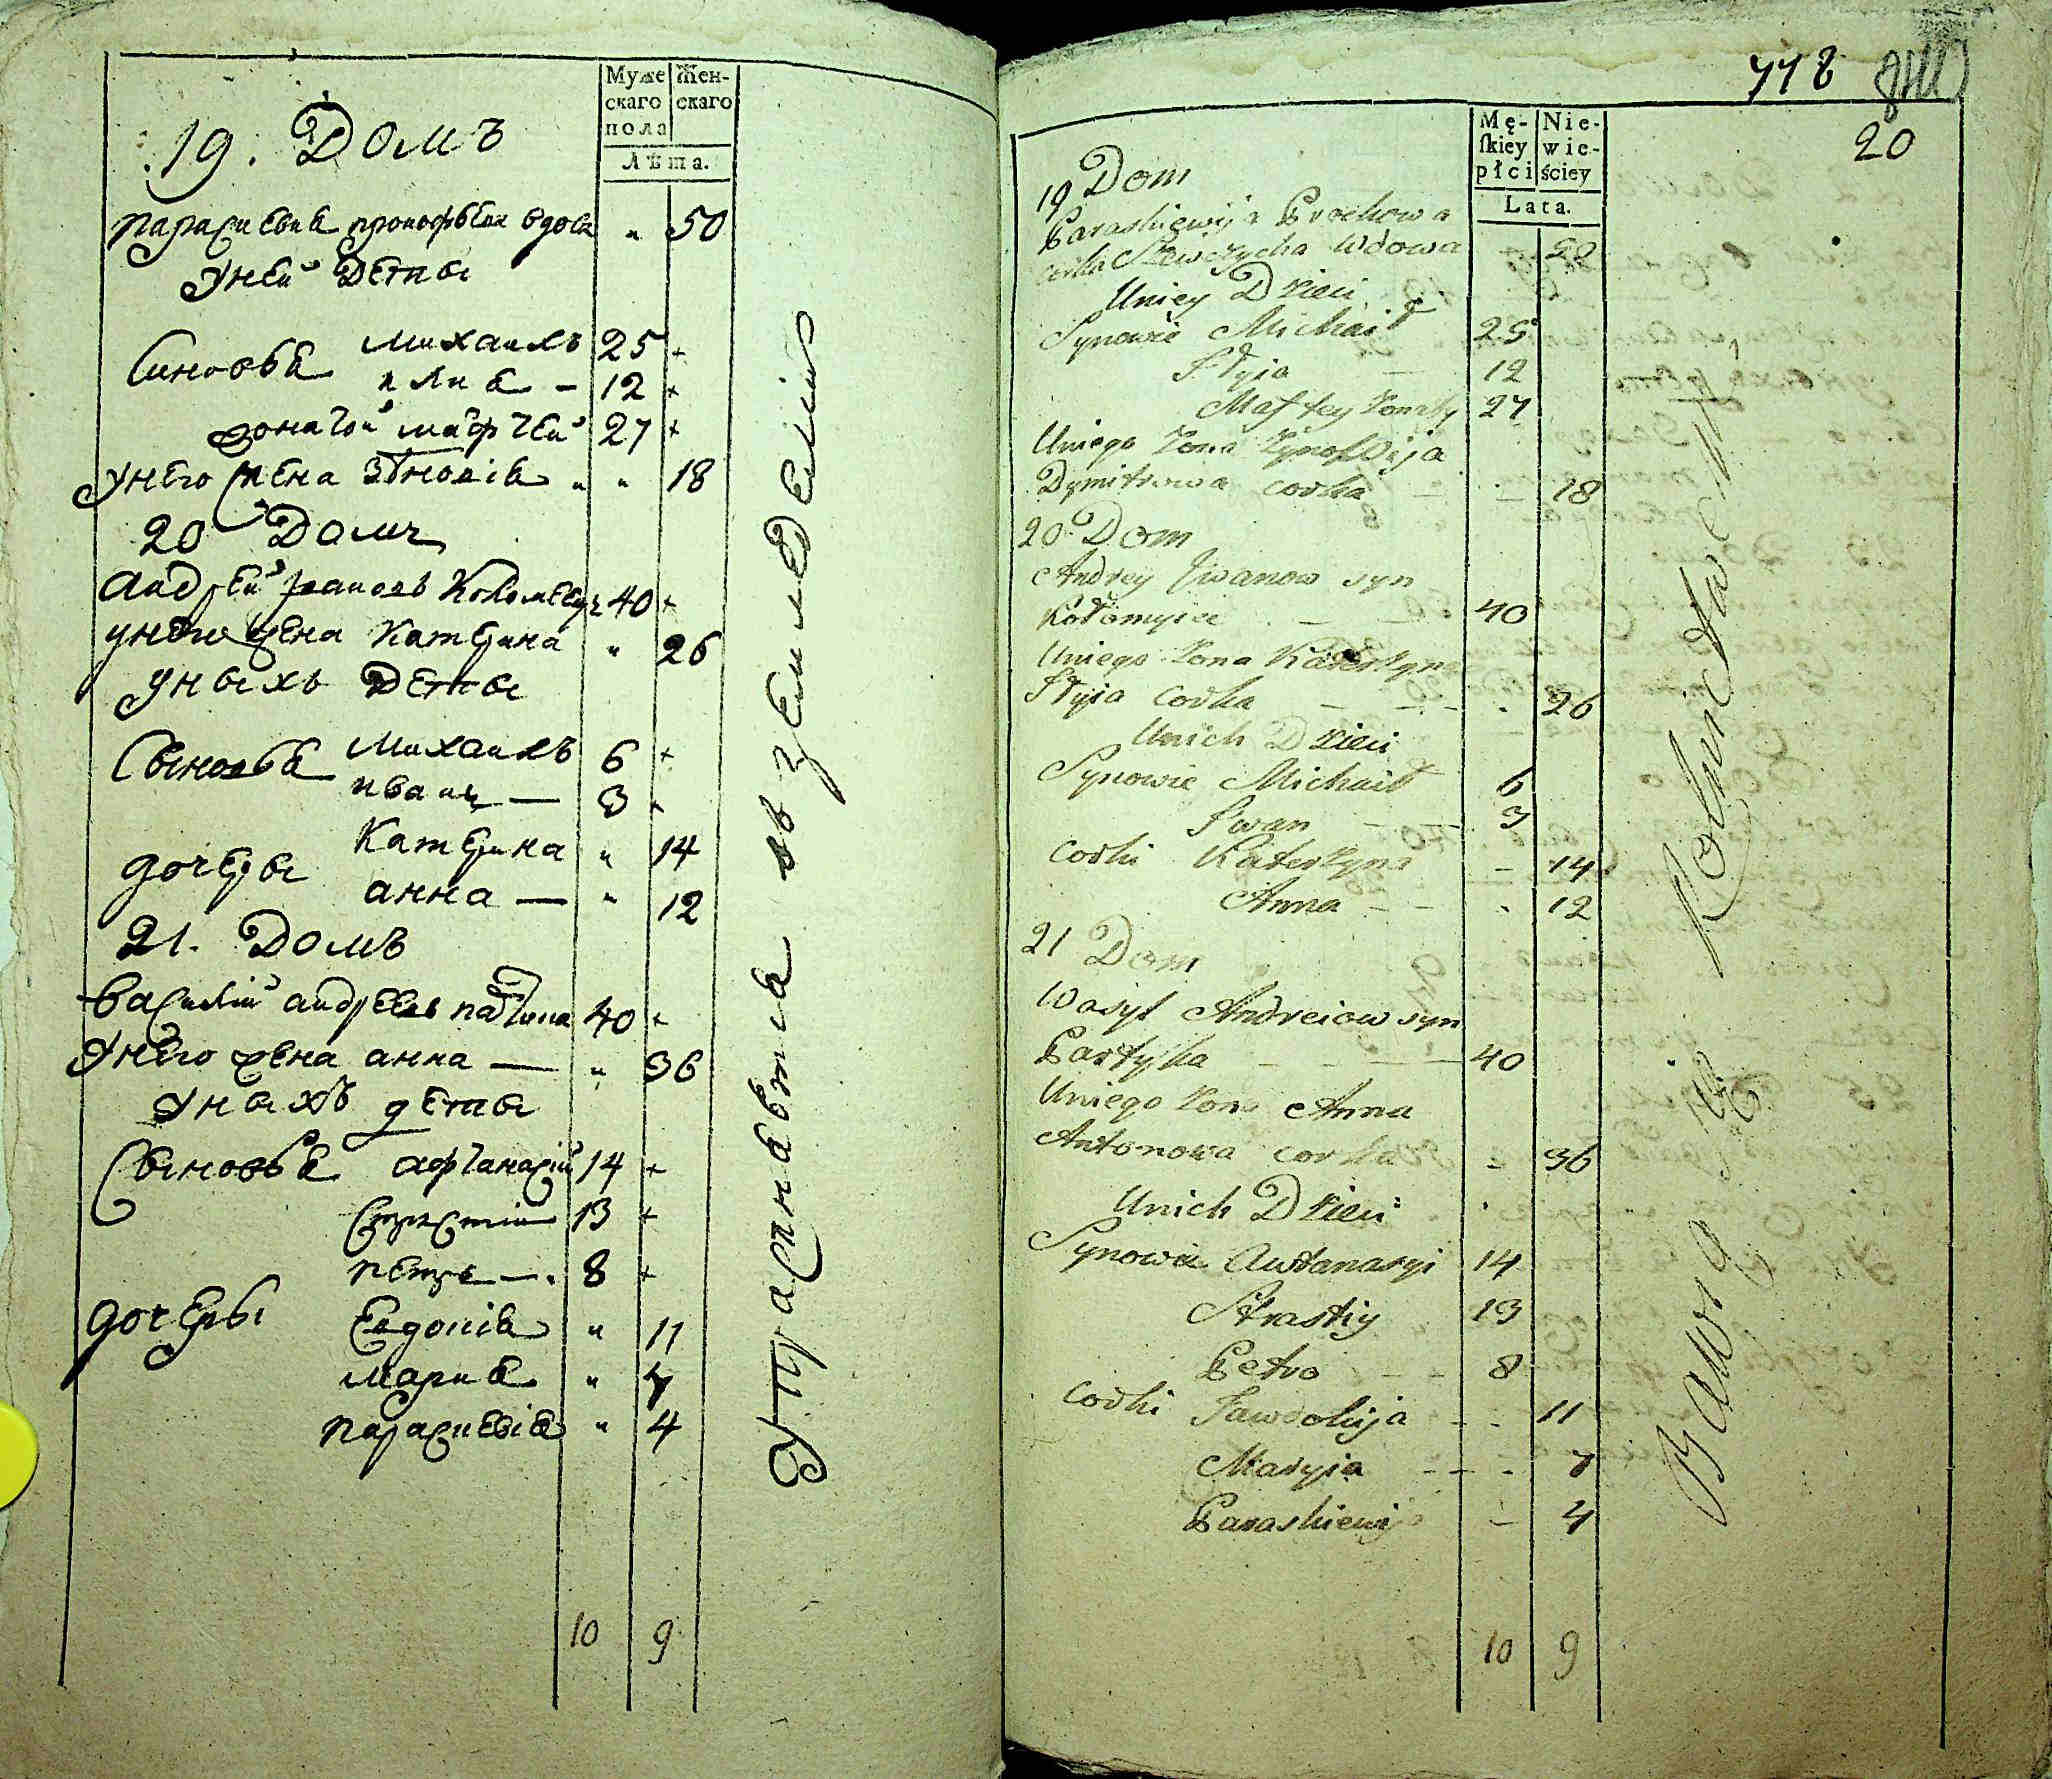 Муже
скаго
пола
Жен-
скаго
Лѣта.
19. Домъ
Параскевия вдова " 50
У ней дети
Синовья Михаилъ 25 +
илия - 12 +
Матфей 27 +
У него жена " " 18
20 Домъ
Андрей Ивановъ 40 +
У него жена Катерина " 26
У ныхъ дети
Сыновья Михаилъ 6 +
иванъ — 3 +
дочеры Катерина " 14
анна — " 12
21. Домъ
Василий андреевъ 40 +
У него жена анна — " 36
У ныхъ дети
Сыновья афтанасий 14 +
13 +
петръ — . 8 +
дочеры Евдокия " 11
мария " 7
параскевия " 4
10 9
Упражняется въ земледелии
718
20
Mę-
skiey
płci
Nie-
wie-
ściey
Lata.
19 Dom
Paraskiewija Prochowa
corka Szewczycha Wdowa 50
U niey Dzieci
Synowie Michaił 25
Jlyia — 12
Maftey Żonaty 27
Uniego Żona Zynowija
Dymitrowa corka — - — 18
20 Dom
Andrey Jwanow syn
Kołomyiec - — 40
Uniego Żona Katerzyna
Jlyia Corka — - - - . 26
Unich Dzieci
Synowie Michaił 6
Jwan — 3
Corki Katerzyna - 14
Anna - - . 12
21 Dom
Wasyl Andreiow syn
Partyka — - - — 40
Uniego Żona Anna
Antonowa corka - 36
Unich Dzieci
Synowie Awtanasyi 14
Strastiy 13
Petro - - 8
Corki Jawdokija - - 11
Maryia - - - 7
Paraskiewija — 4
10 9
Bawią się Rolnictwem